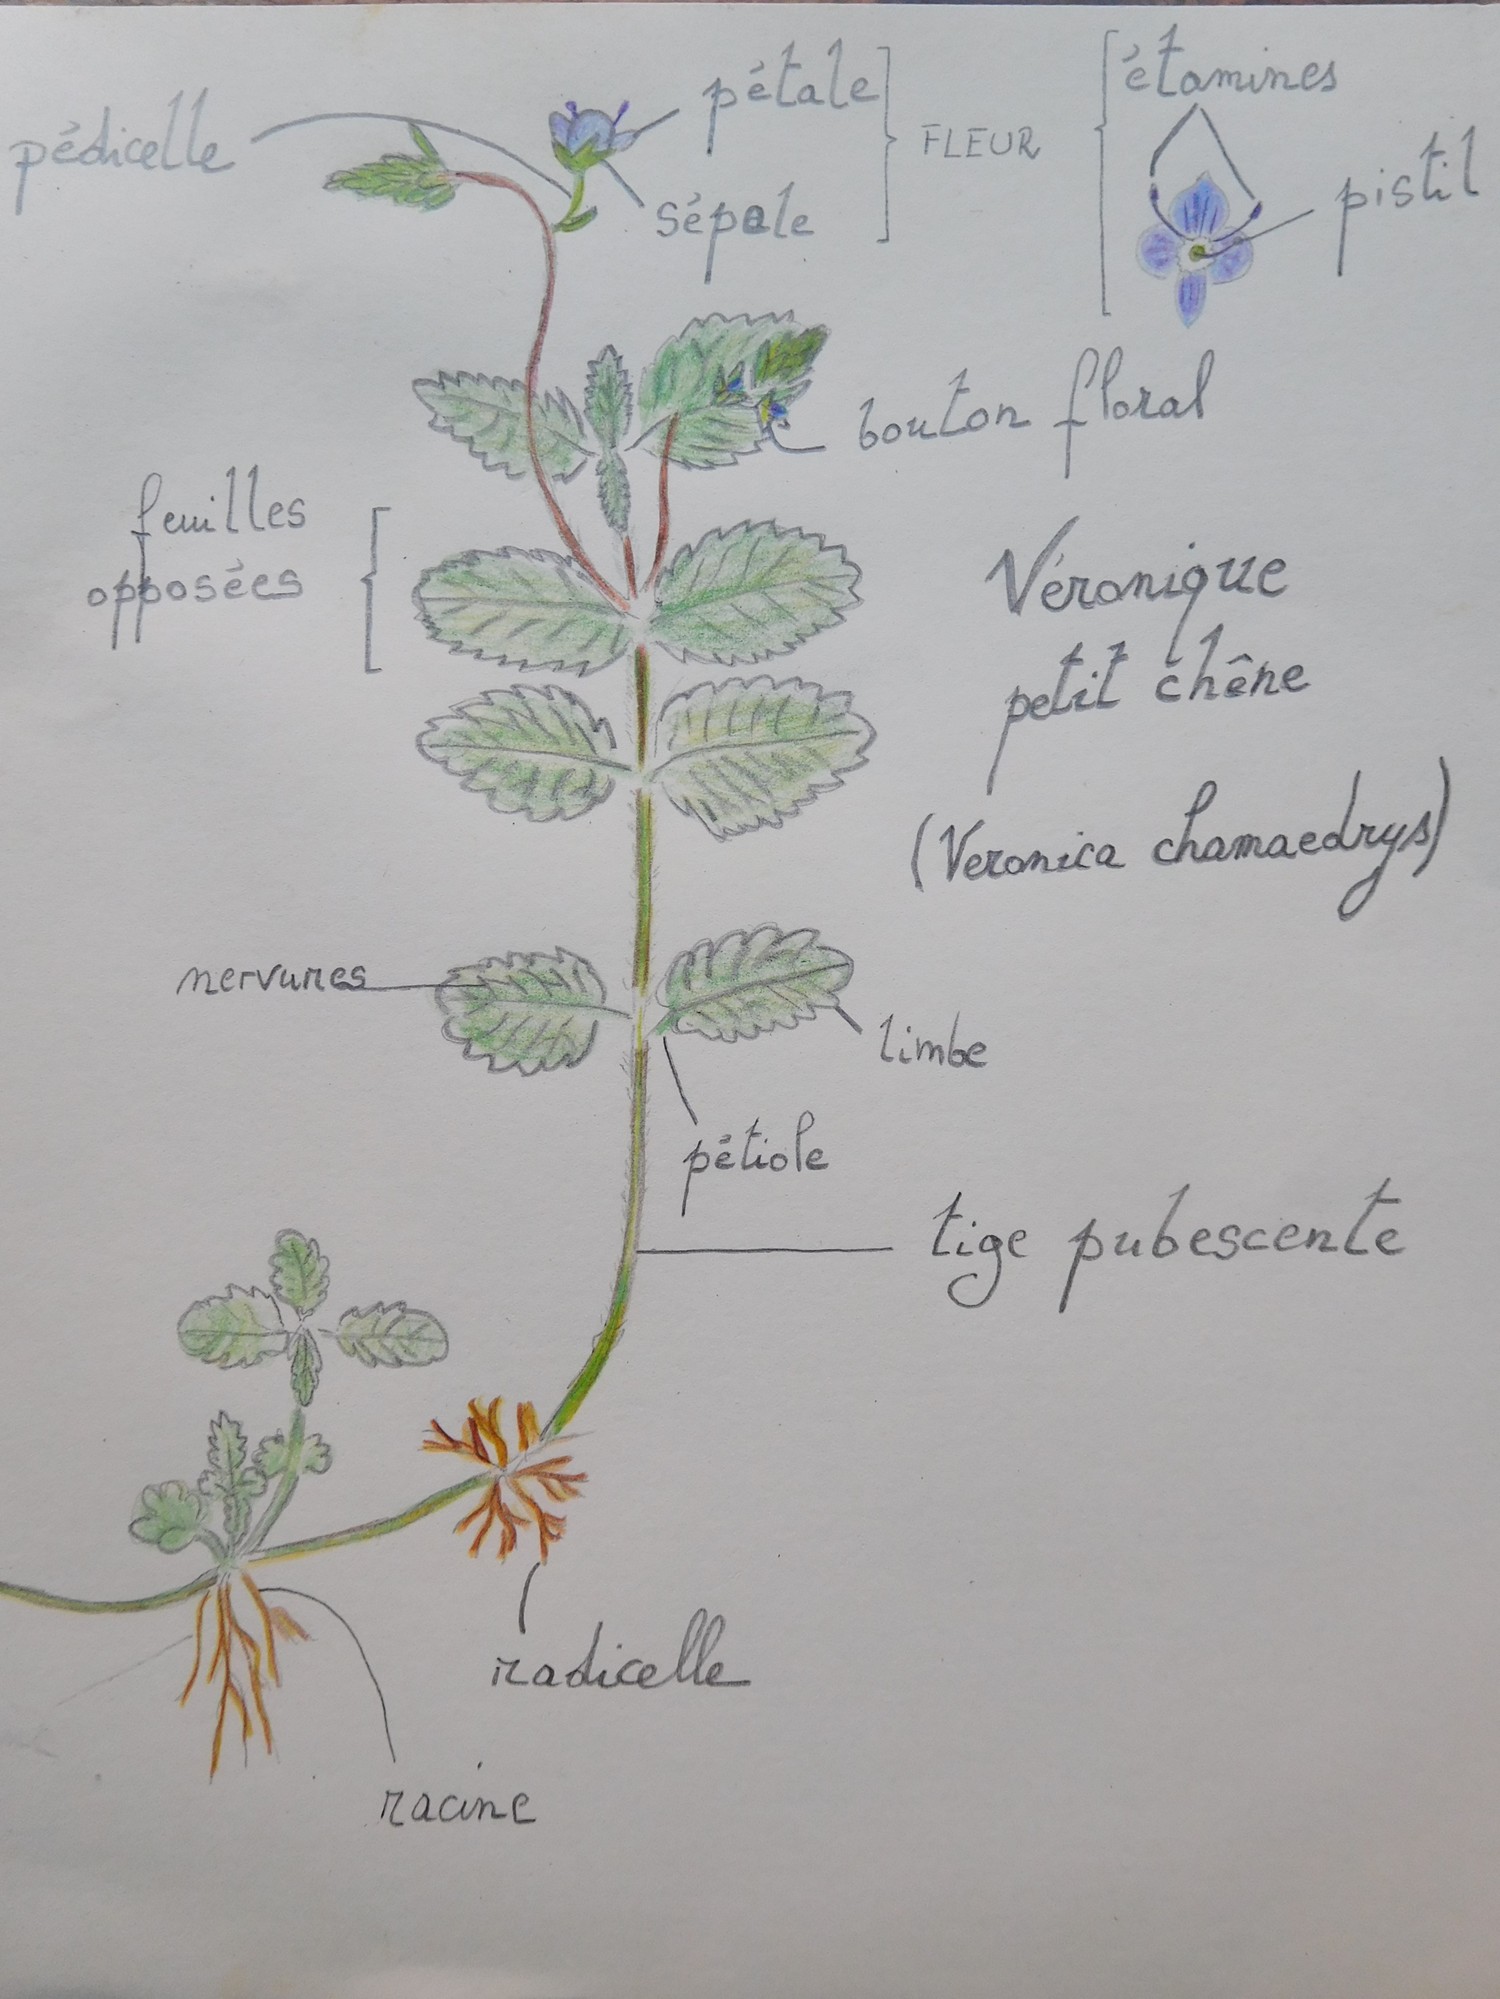 étamines
pétale
pédicelle
FLEUR
pistil
sépale
bouton floral
feuilles
opposées
Véronique
petit chêne
(Veronica chamaedrys)
nervures
limbe
pétiole
tige pubescente
radicelle
racine